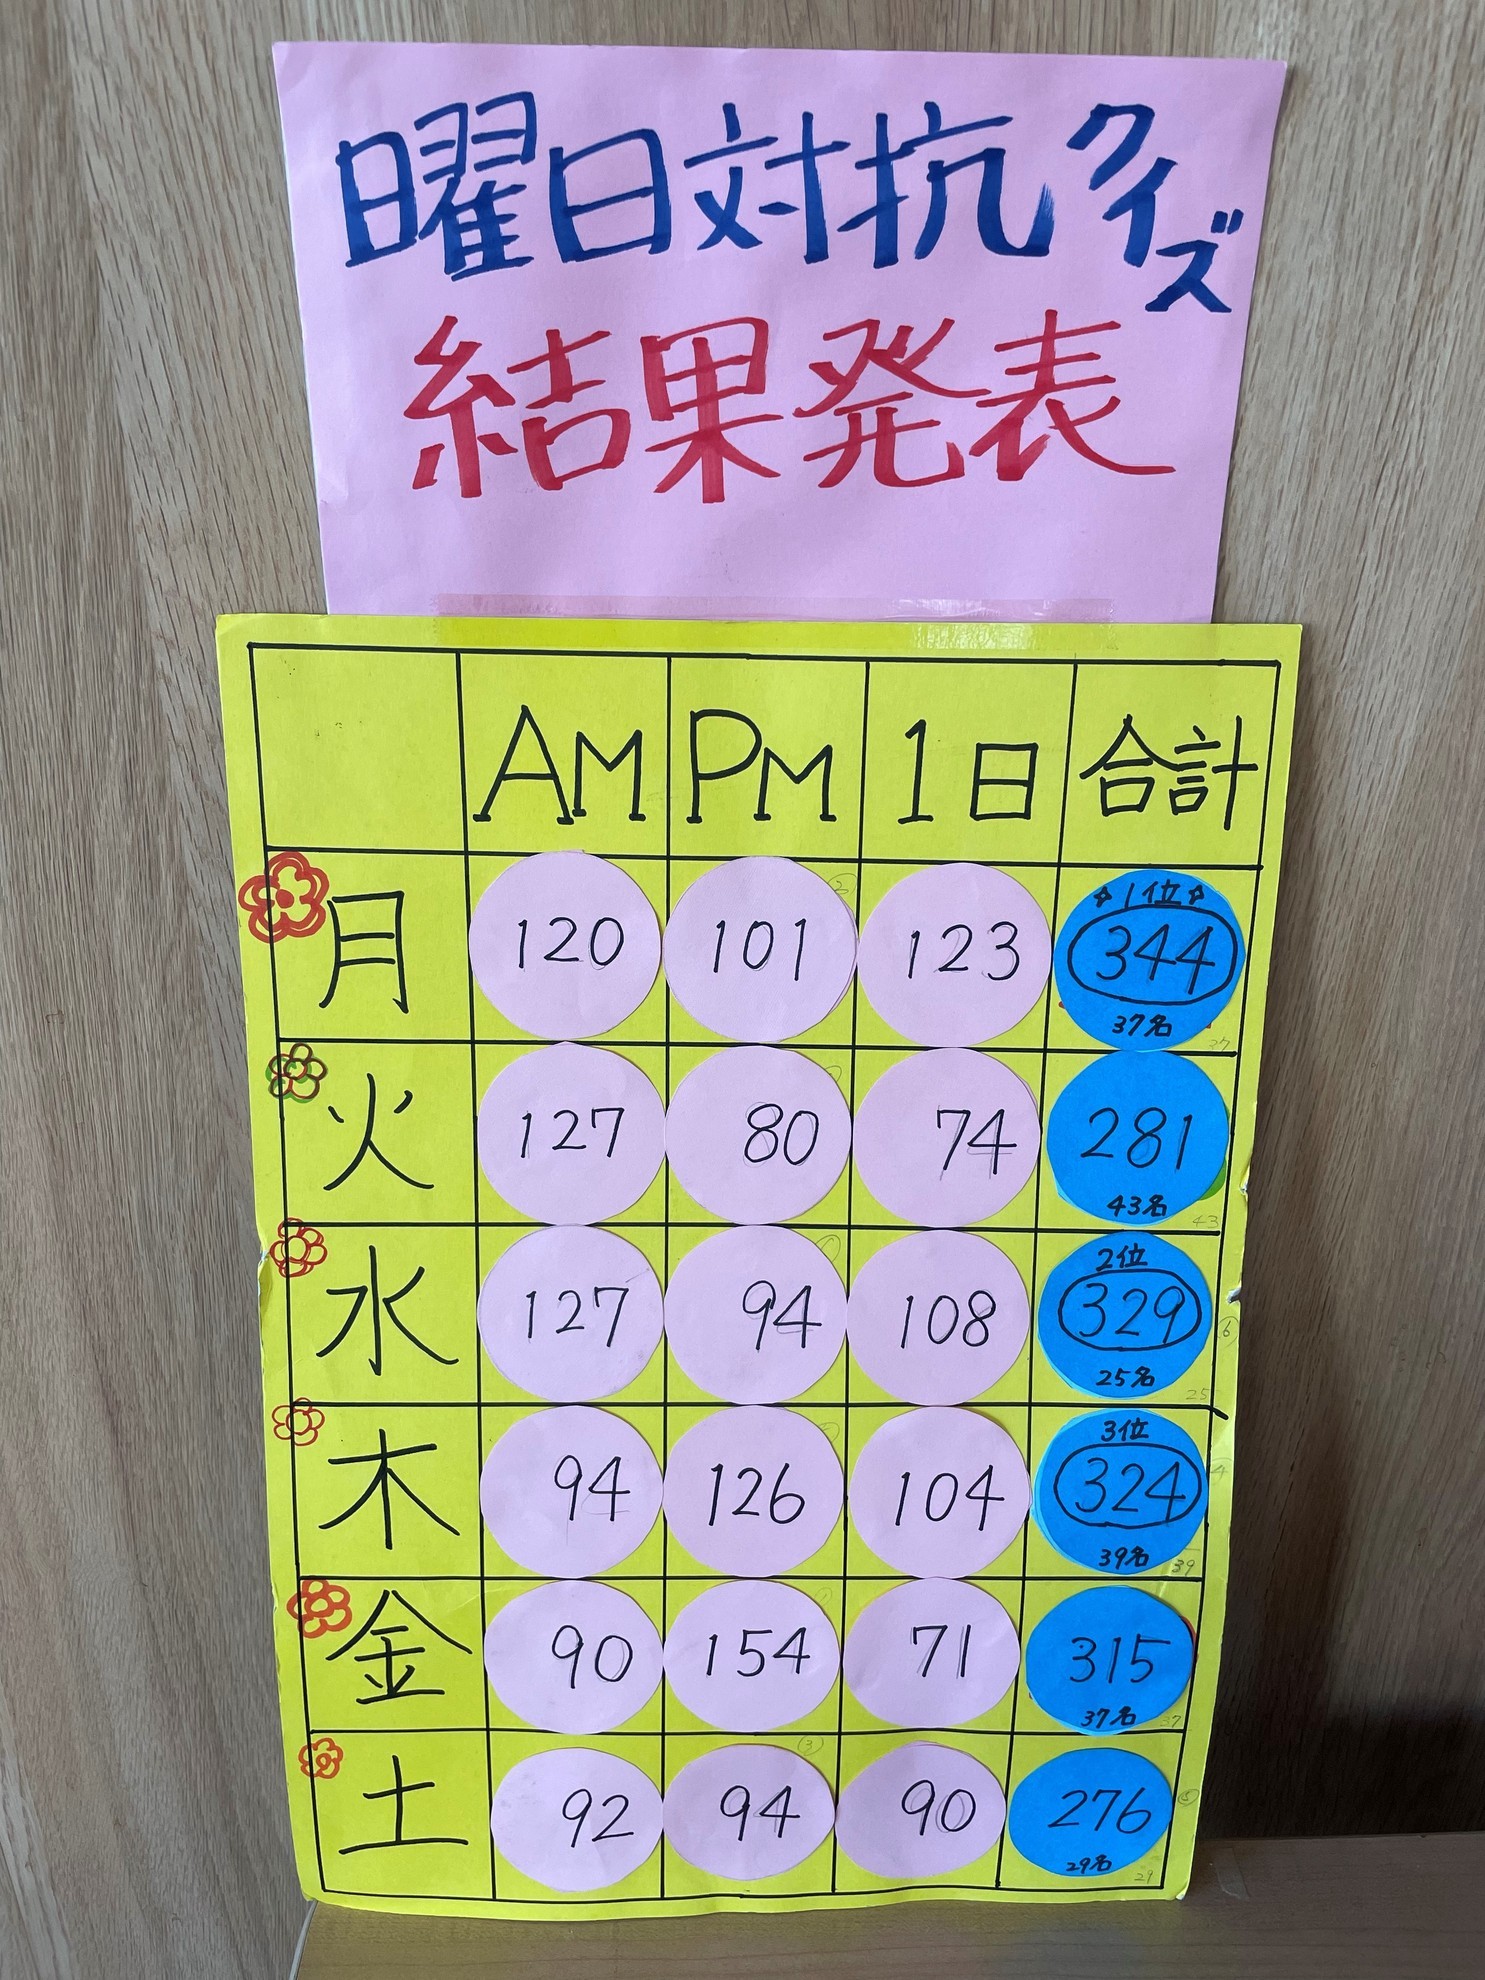 曜日対抗クイズ
結果発表
AM PM 1日 合計
月 120 101 123 ☆1位☆ 344 37名
火 127 80 74 281 43名
水 127 94 108 2位 329 25名
木 94 126 104 3位 324 39名
金 90 154 71 315 37名
土 92 94 90 276 29名